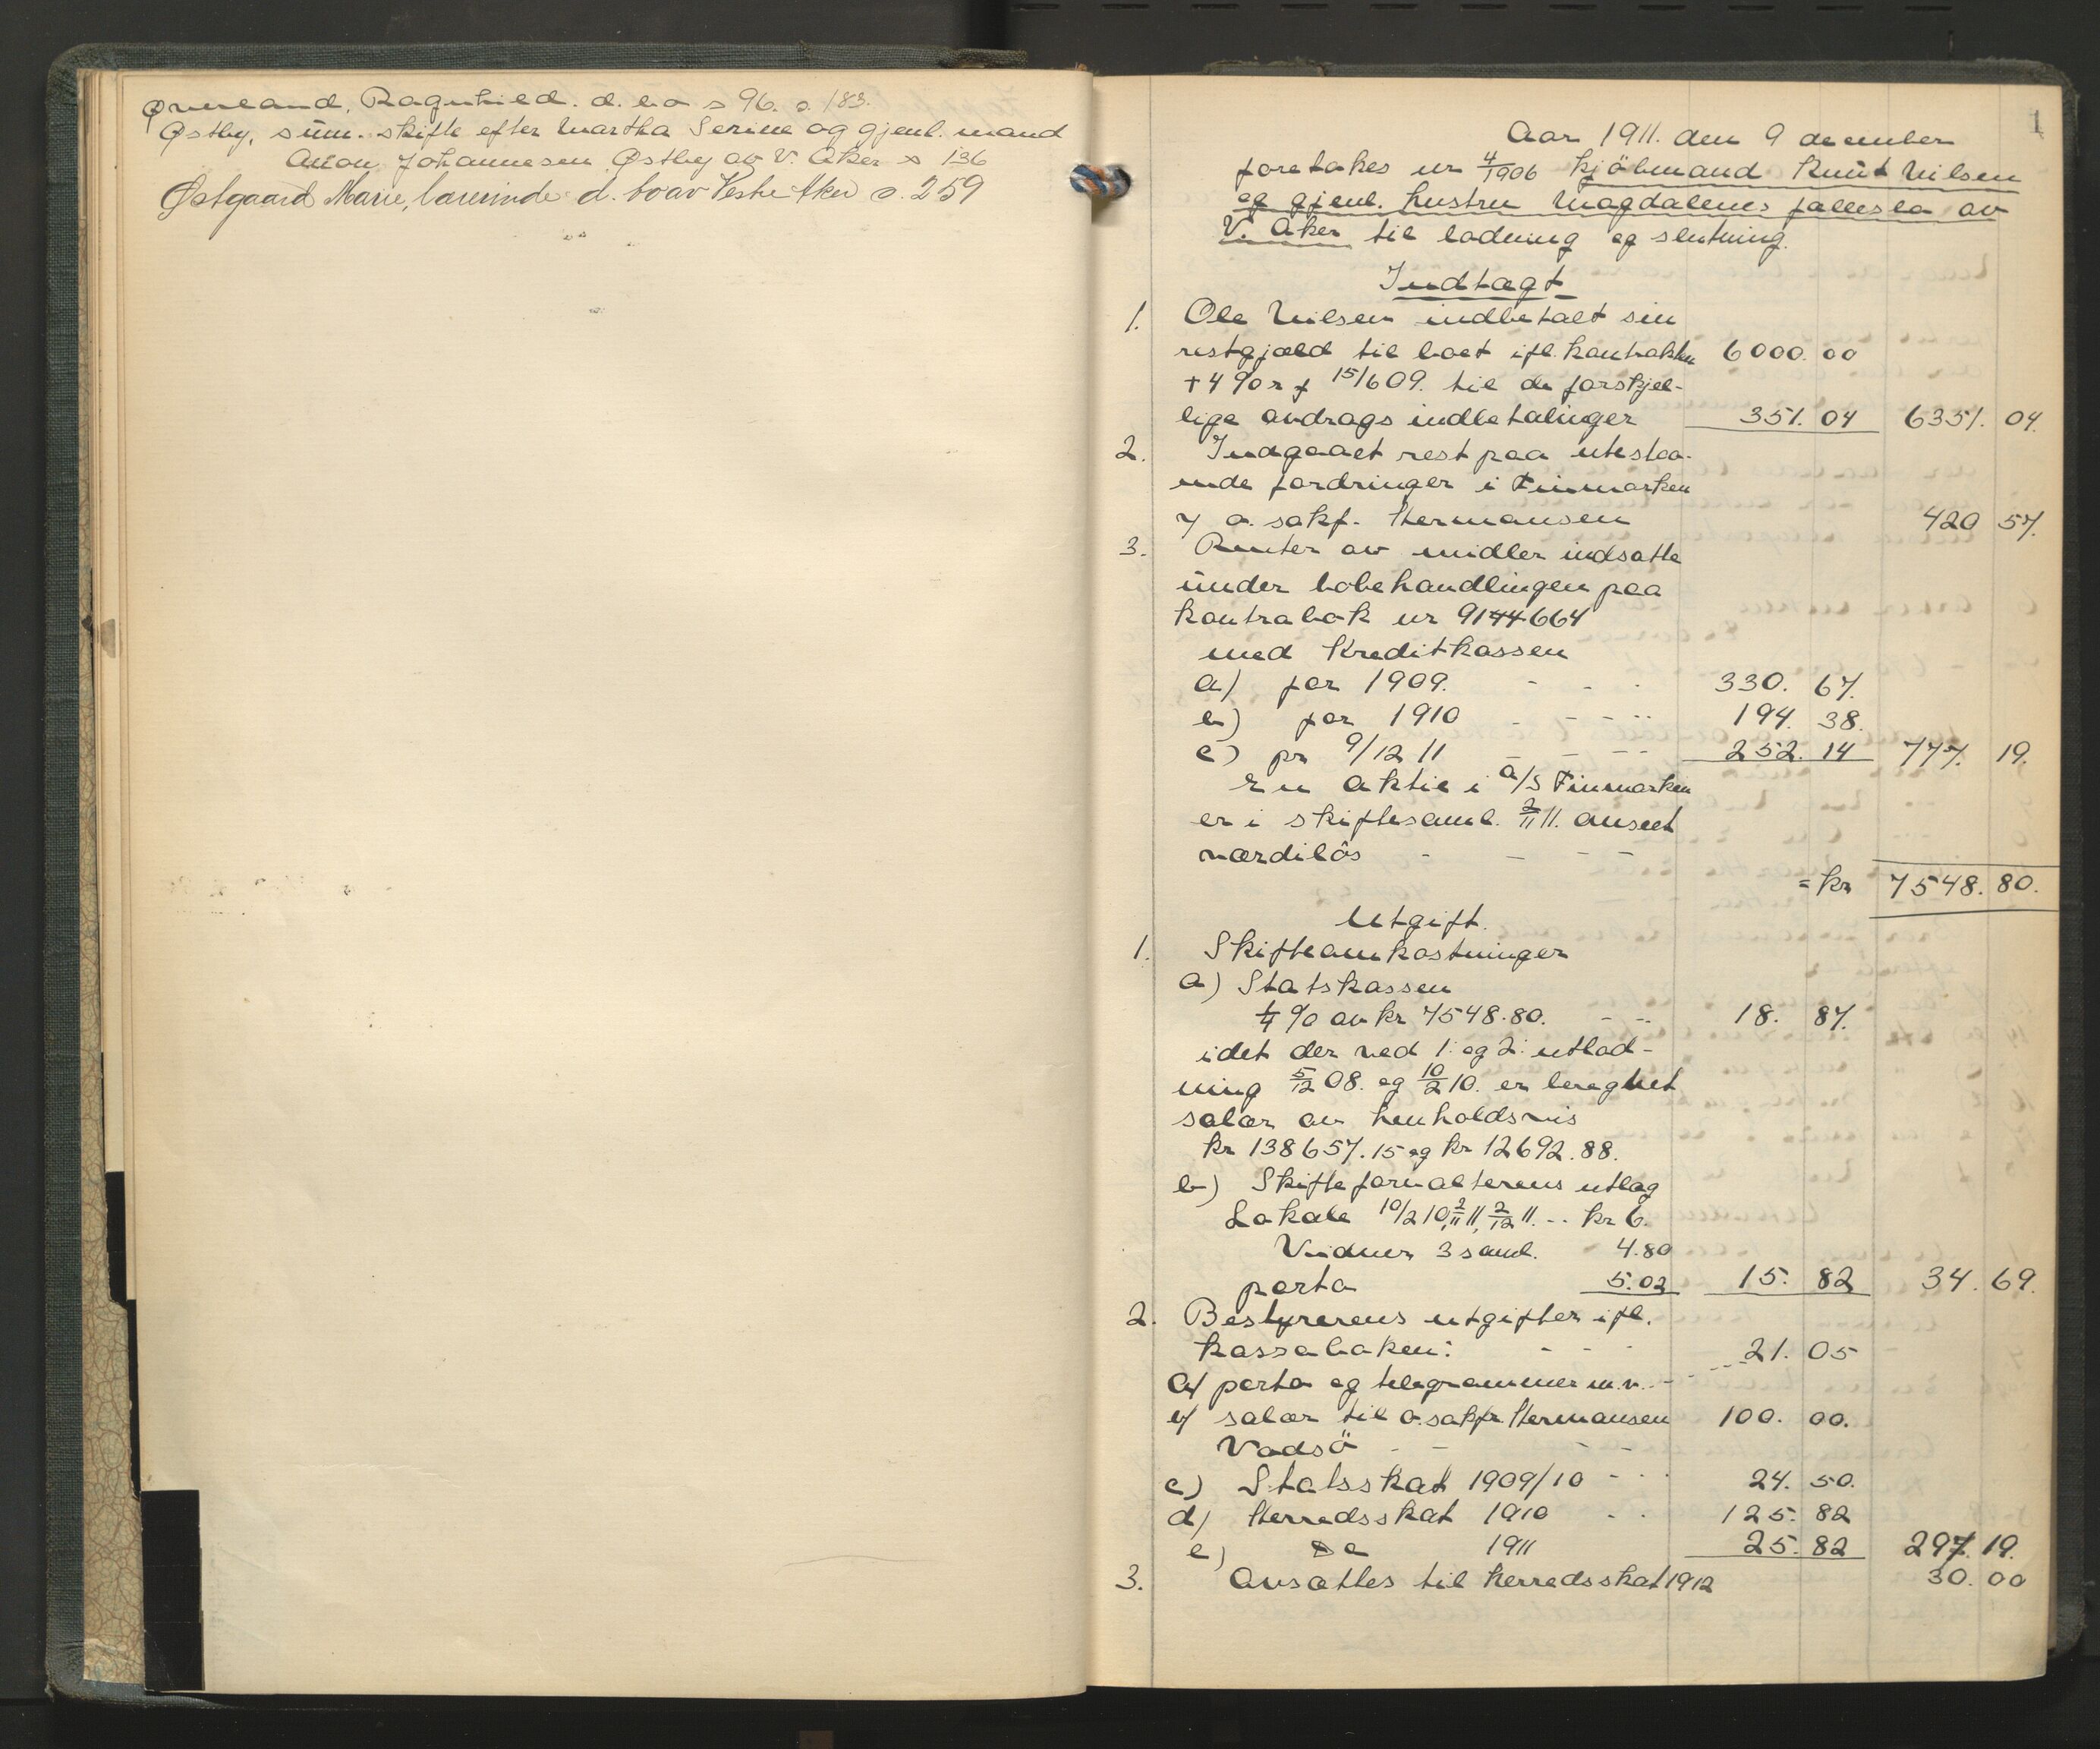 Øverland, Ragnhild. d. bo s 96. s. 183.
Østby, sum. skifte efter Martha Serine og gjenl. mand
Anon Johannesen Østby av V. Aker s 136
Østgaard Marie, lærerinde d. bo av Vestre Aker s. 259
1
Aar 1911. den 9 december
foretakes nr 4/1906 kjøbmand Knut Nilsen
og gjenl. hustru Magdalenes fællesbo av
V. Aker til lodning og slutning.
Indtægt
1. Ole Nilsen indbetalt sin
restgjæld til boet ifl. kontrakten 6000. 00
+ 4 % r f 15/6 09. til de forskjel-
lige avdrags indbetalinger 351. 04 6351. 04.
2. Indgaaet rest paa utestaa-
ende fordringer i Finmarken
v/ o. sakf. Hermansen 420 57.
3. Renter av midler indsatte
under bobehandlingen paa
kontrabok nr 9144664
med Kreditkassen
a) for 1909. - - - 330. 67.
b) for 1910 - - - - 194. 38.
c) pr 9/12 11 - - - 252. 14 777. 19.
En aktie i A/S Finmarken
er i skiftesaml. 2/11 11. anseet
værdiløs - - - -
= kr 7548. 80.
Utgift.
1. Skifteomkostninger
a) Statskassen
1/4 % av kr 7548.80. - - 18. 87.
idet der ved 1. og 2. utlod-
ning 5/12 08. og 10/2 10. er beregnet
salær av henholdsvis
kr 138657.15 og kr 12692.88.
b) Skifteforvalterens utlæg
Lokale 10/2 10, 2/11 11, 2/12 11. -- kr 6.
Vidner 3 saml. 4.80
porto 5.02 15. 82 34. 69.
2. Bestyrerens utgifter ifl.
kassaboken: - - - 21. 05
a) porto og telegrammer m.v. --
b) salær til o.sakfr Hermansen 100. 00.
Vadsø - - - -
c) Statsskat 1909/10 - - - 24. 50.
d) Herredsskat 1910 - - 125. 82
e) Do 1911 25. 82 297. 19.
3. Avsættes til herredsskat 1912 30. 00